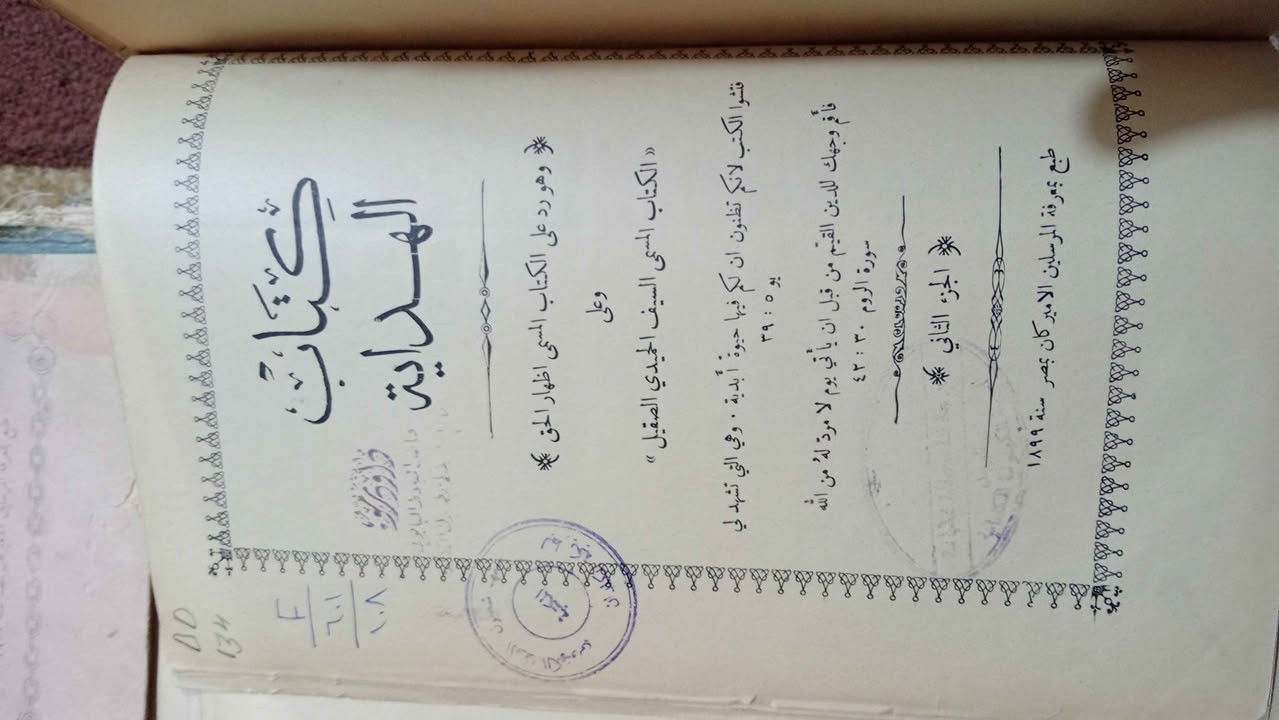 كتاب
الهداية
وهو رد على الكتاب المسمى اظهار الحق
وعلى
«الكتاب المسمى السيف الحميدي الصقيل»
فتشوا الكتب لانكم تظنون ان لكم فيها حيوة أبدية . وهي التي تشهد لي
يو ٥ : ٣٩
فأقم وجهك للدين القيّم من قبل ان يأتي يوم لا مردَّ لهُ من الله
سورة الروم ٣٠ : ٤٢
الجزء الثاني
طبع بمعرفة المرسلين الاميركان بمصر سنة ١٨٩٩
DD
134
F
٦٠١
١٠٨